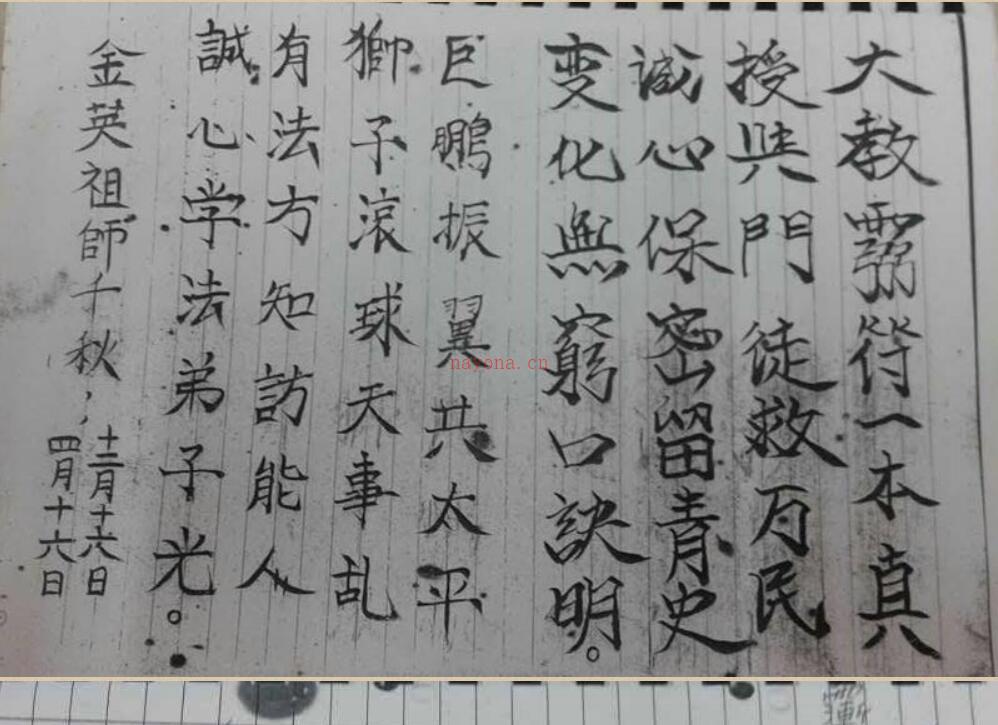 大教霛符一本真
授與門徒救万民
誠心保密留青史
变化無窮口訣明。
巨鵬振翼共太平
獅子滚球天事乱
有法方知訪能人
誠心学法弟子光。
金英祖師千秋,
十二月十六日
四月十六日
nayona.cn